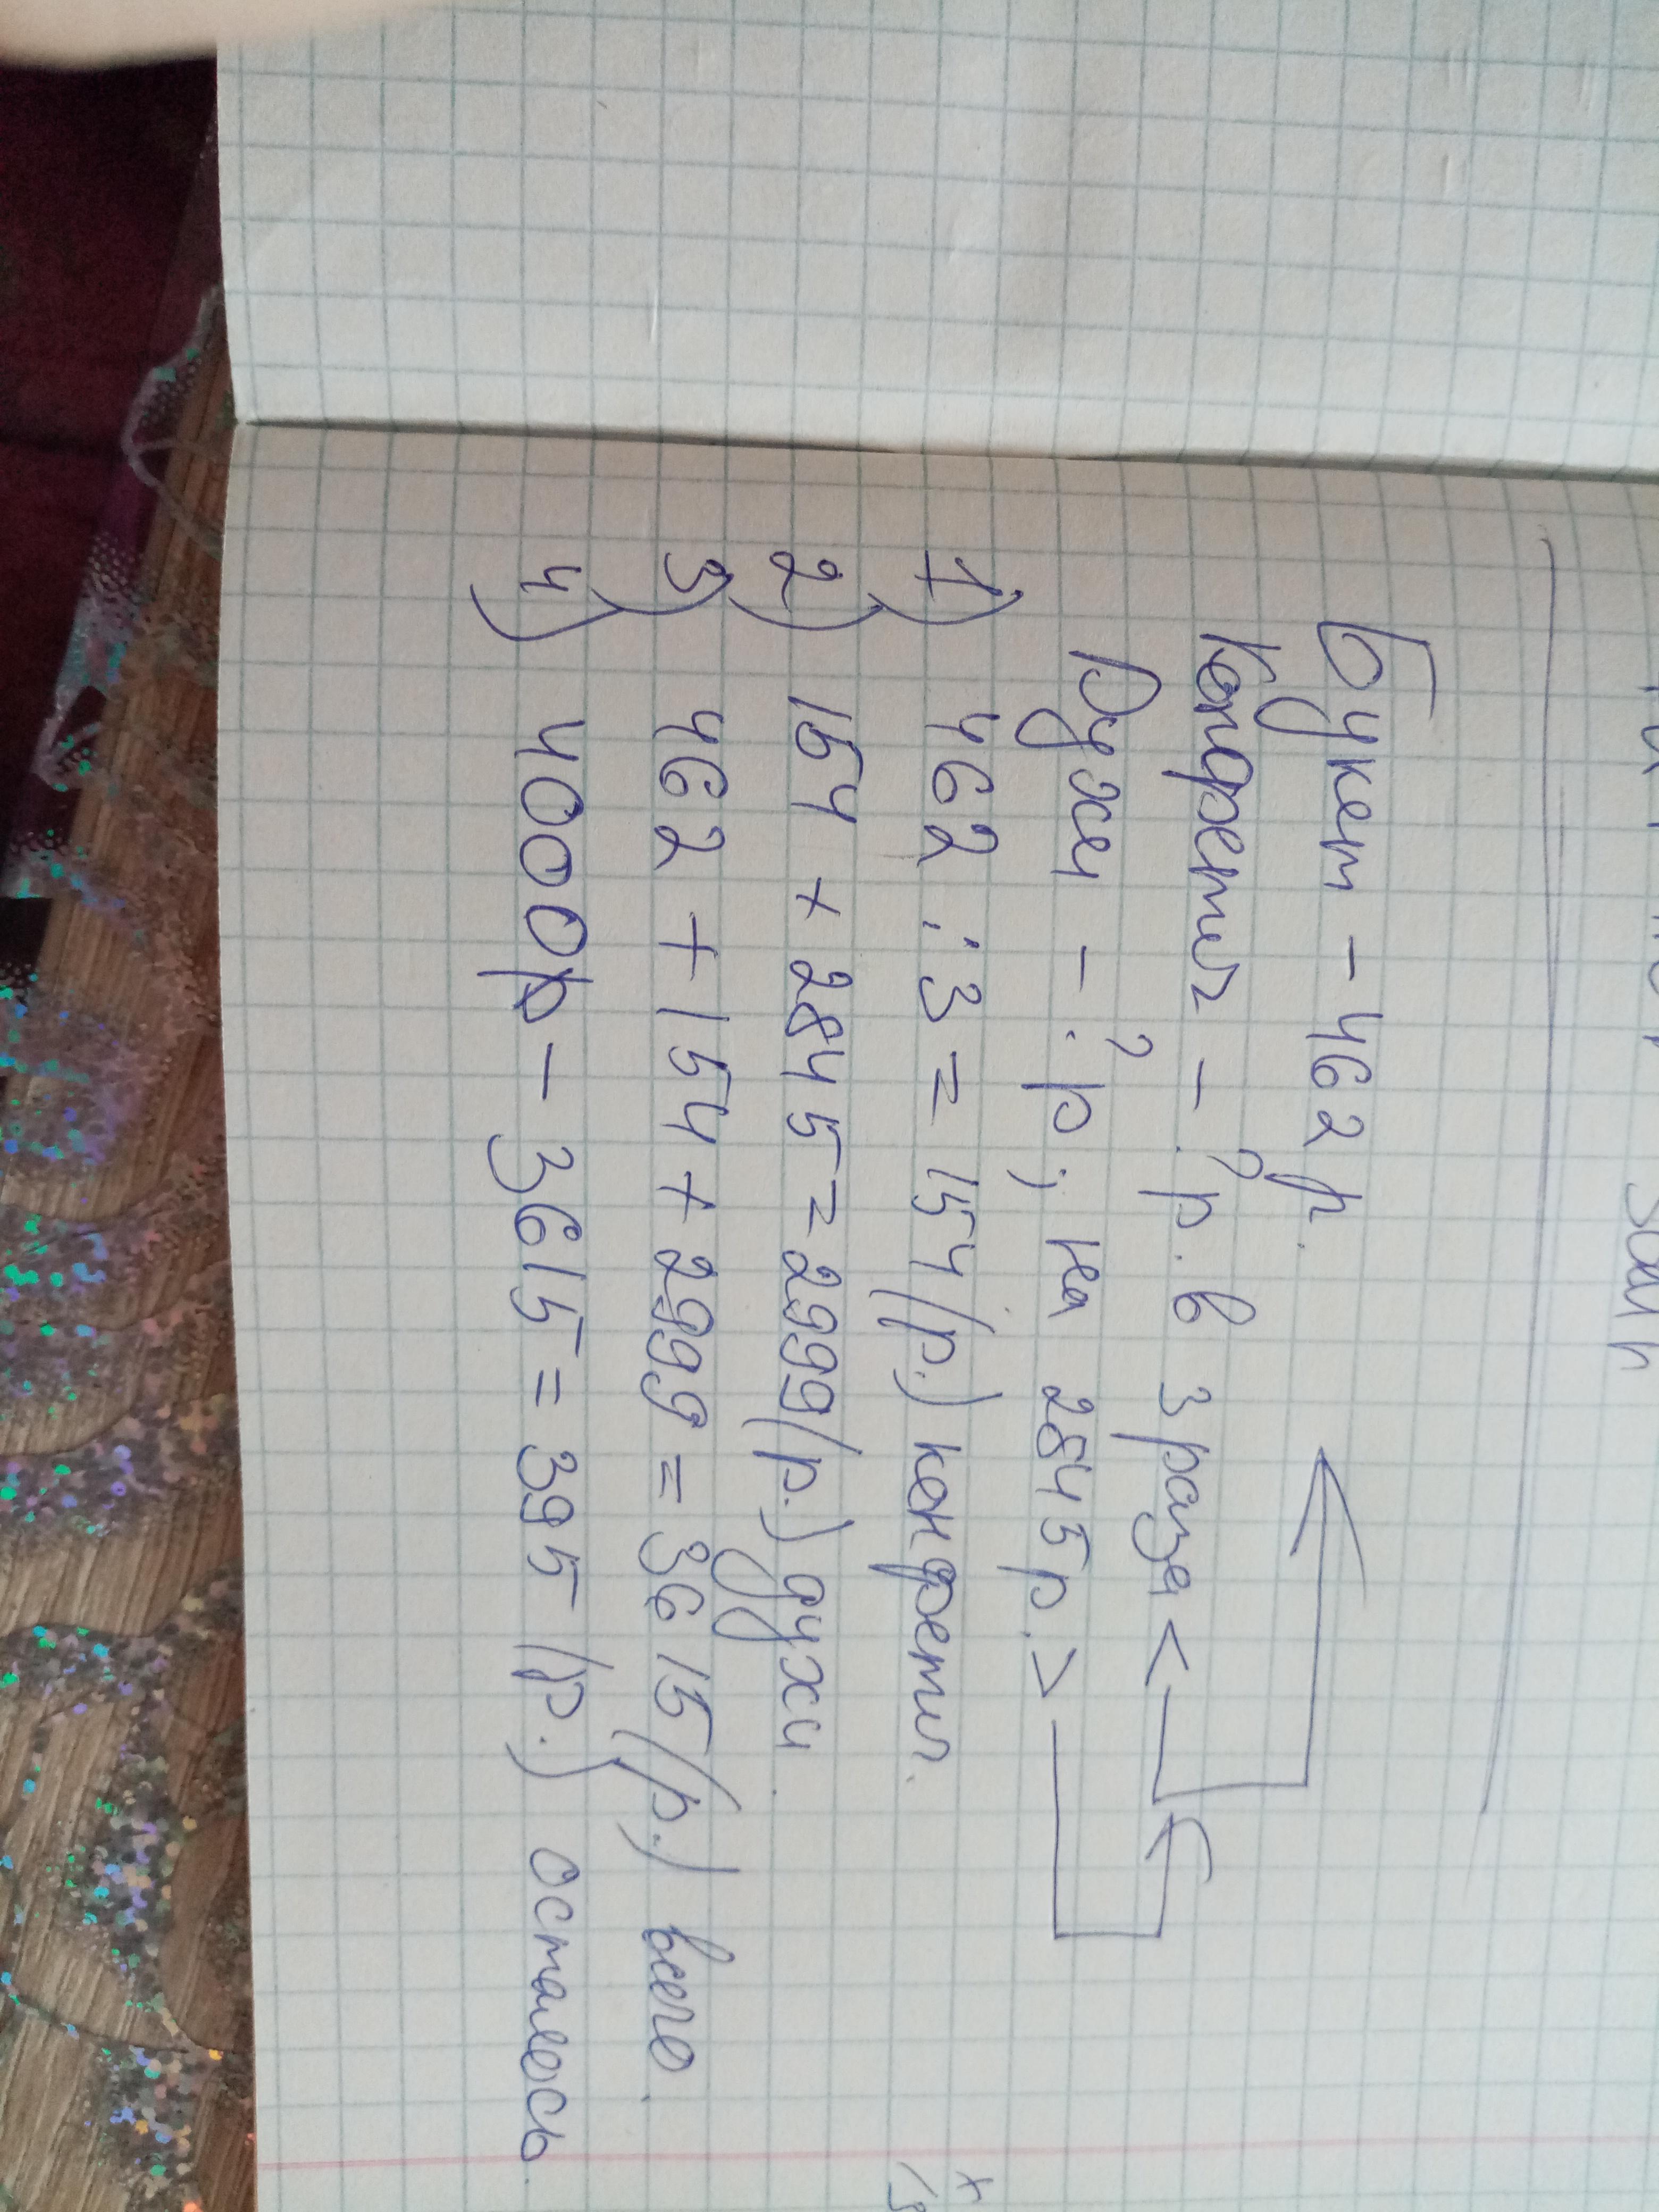 Букет - 462 р.
Конфеты - ? р. в 3 раза <
Духи - ? р, на 2845 р. >
1) 462 : 3 = 154 (р.) конфеты.
2) 154 + 2845 = 2999 (р.) духи.
3) 462 + 154 + 2999 = 3615 (р.) всего.
4) 4000р - 3615 = 395 (р.) осталось.